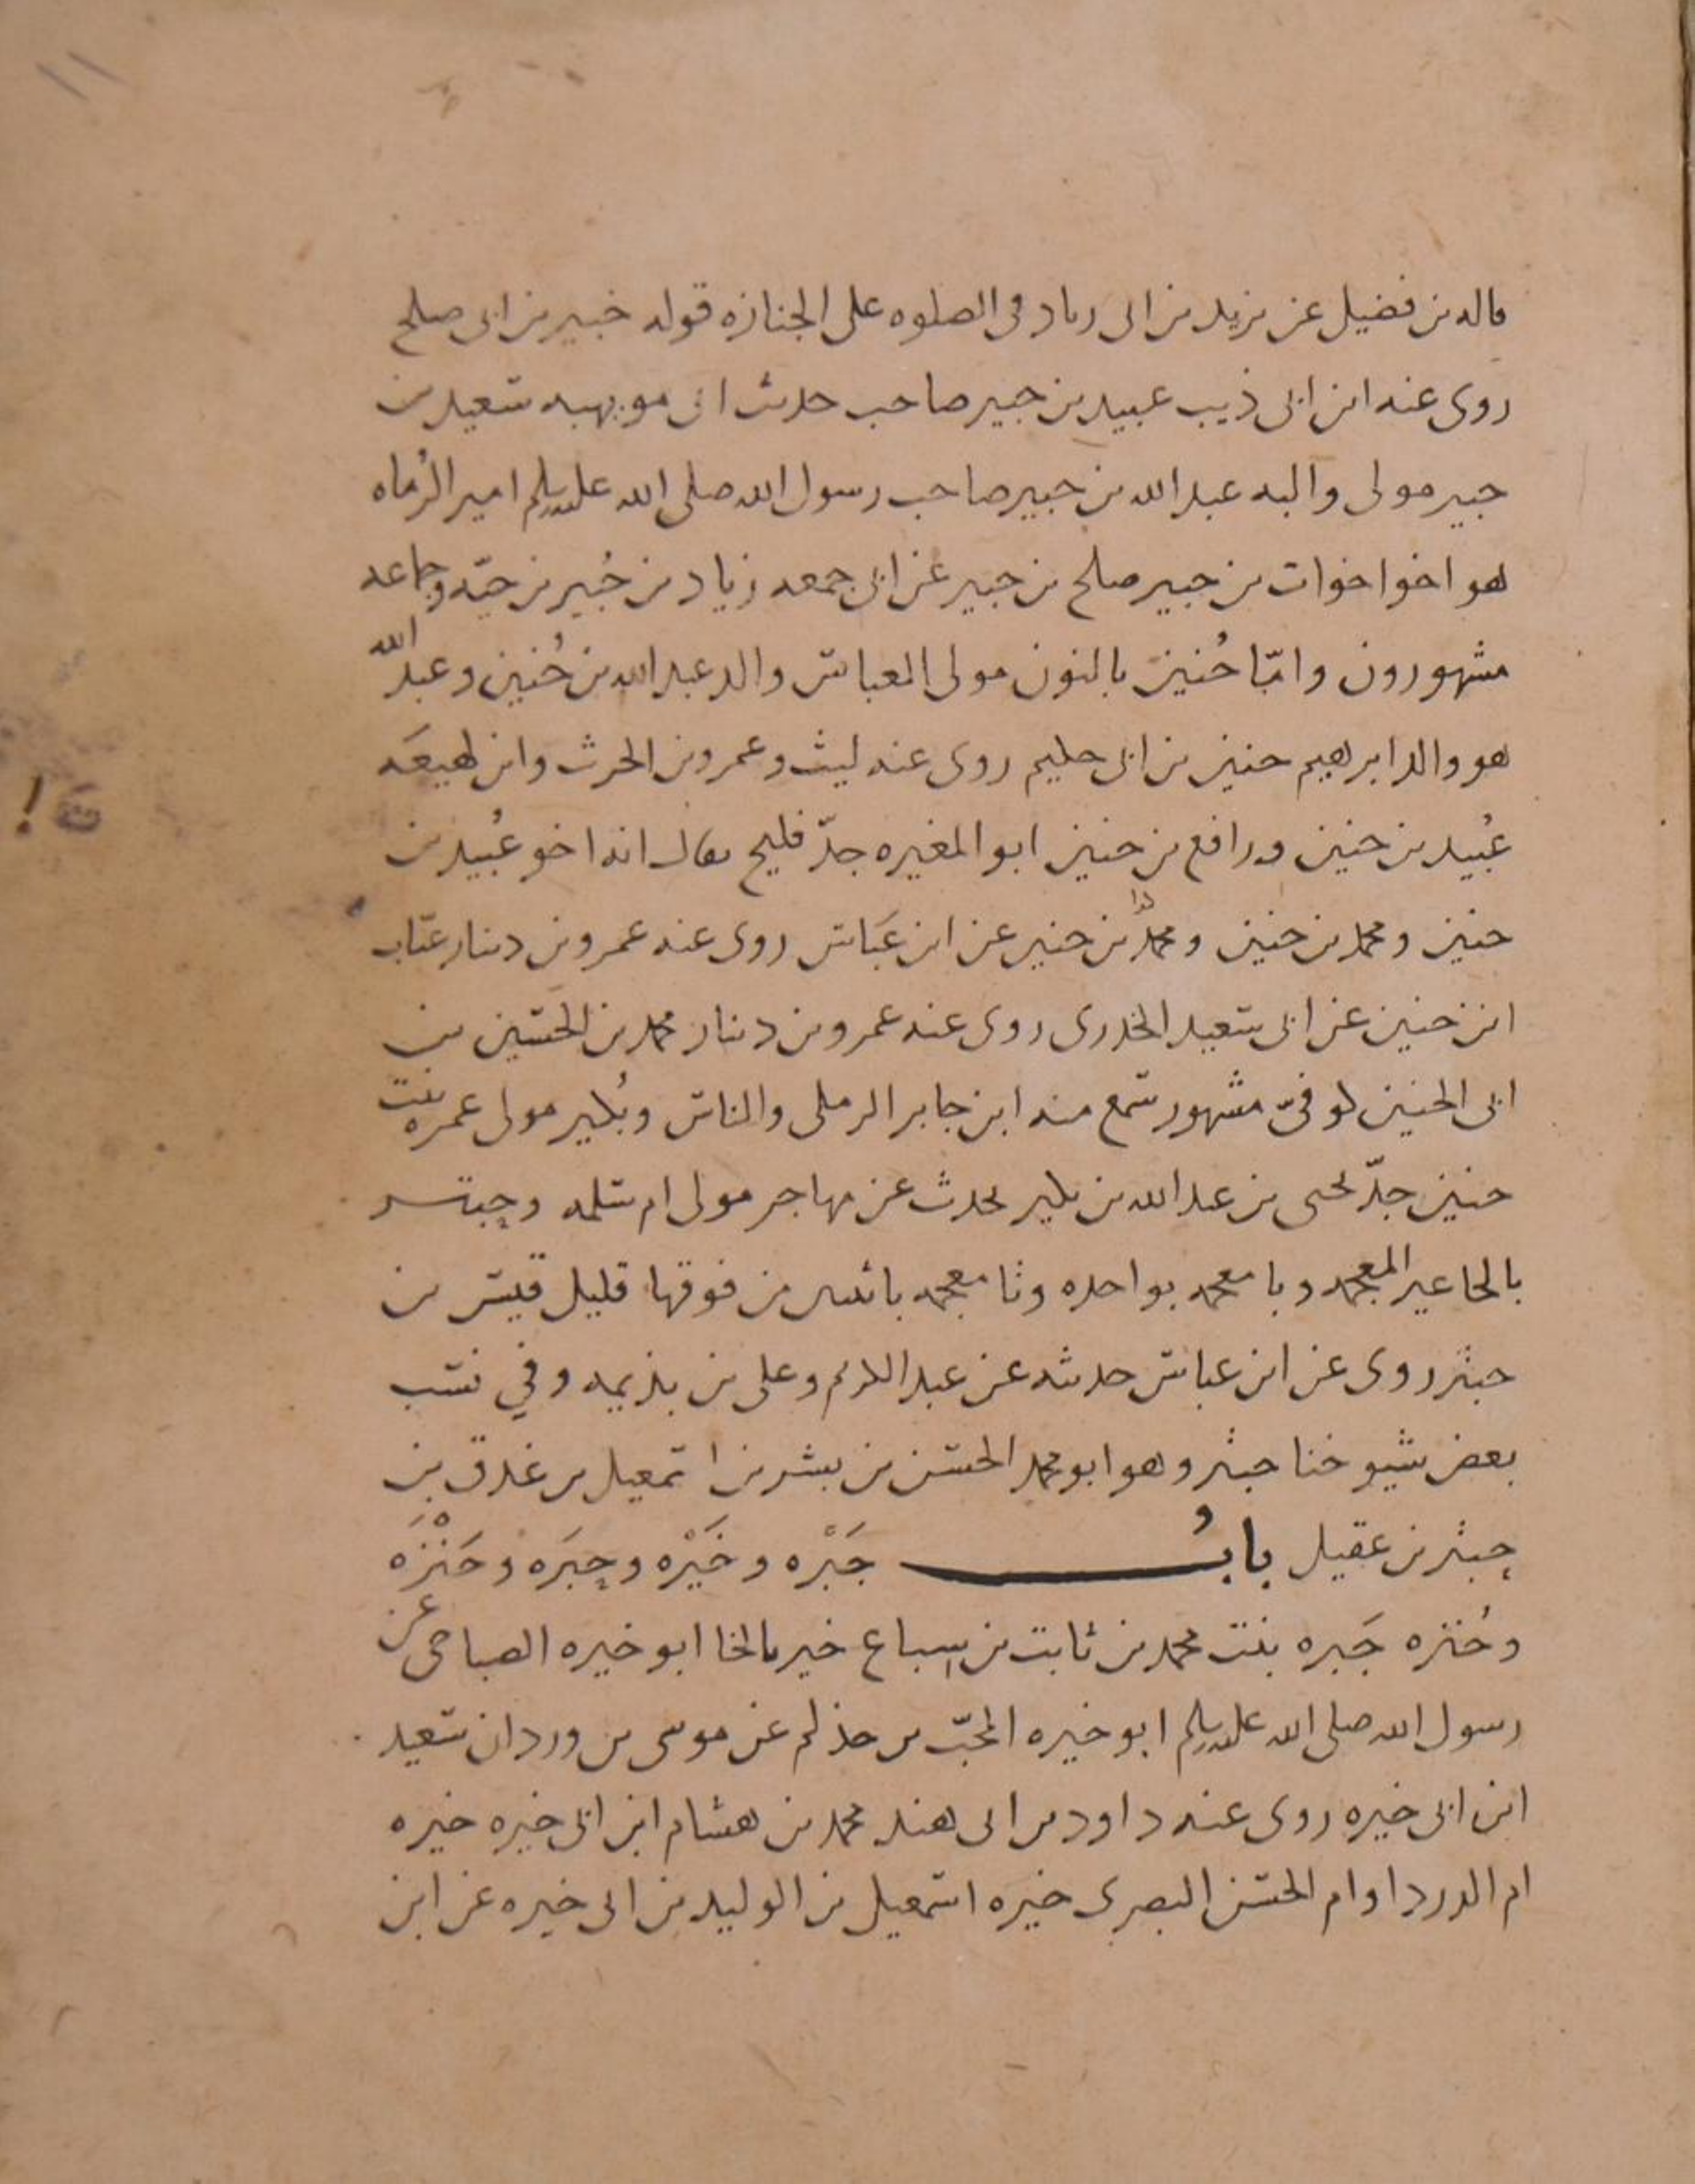 ١١
قاله بن فضيل عن يزيد بن ابى زياد فى الصلوه على الجنازه قوله خبير بن ابى صلح
روى عنه ابن ابى ذيب عبيد بن جبير صاحب حديث ابى مويهبه سعيد بن
جبير مولى والبه عبد الله بن جبير صاحب رسول الله صلى الله عليه وسلم امير الرُماه
هو اخوا خوات بن جبير صلح بن جبير عن ابى جمعه زياد بن جُبير بن حيّه وجماعه
مشهورون وامّا حُنين بالنون مولى العباس والد عبد الله بن حُنين وعبد الله
هو والد ابرهيم حنين بن ابى حكيم روى عنه ليث وعمرو بن الحرث وابن لهيعَه
عُبيد بن حنين ورافع بن حنين ابو المغيره جدّ فليح يقال انه اخو عُبيد بن
حنين ومحمد بن حنين ومحمد بن حنين عن ابن عَباس روى عنه عمرو بن دينار عتاب
ابن حنين عن ابى سعيد الخدرى روى عنه عمرو بن دينار محمد بن الحسين بن
ابى الحنين كوفىّ مشهور سمع منه ابن جابر الرملى والناس وبُكير مولى عمره بنت
حنين جدّ يحيى بن عبد الله بن بكير يحدث عن مهاجر مولى ام سلمه وحِبتر
بالحا غير المعجمه وبا معجمه بواحده وتا معجمه باثنتين من فوقها قليل قيس بن
حبتر روى عن ابن عباس حديثه عن عبد الكريم وعلى بن بذيمه وفي نسب
بعض شيوخنا حبثر وهو ابو محمد الحسن بن بشر بن اسمعيل بن غدق بن
حِبثر بن عقيل بابُ جَبْره وخَيْره وحِبَره وحَنْزَه
وخُنزه جَبره بنت محمد بن ثابت بن سِباع خيره بالخا ابو خيره الصباحى عن
رسول الله صلى الله عليه وسلم ابو خيره المحبّ بن حذلم عن موسى بن وردان سعيد
ابن ابى خيره روى عنه داود بن ابى هند محمد بن هشام ابن ابى خيره خيره
ام الدردا وام الحسن البصرى خيره اسمعيل بن الوليد بن ابى خيره عن ابن